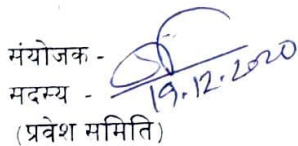 संयोजक -
सदस्य - 19.12.2020
(प्रवेश समिति)